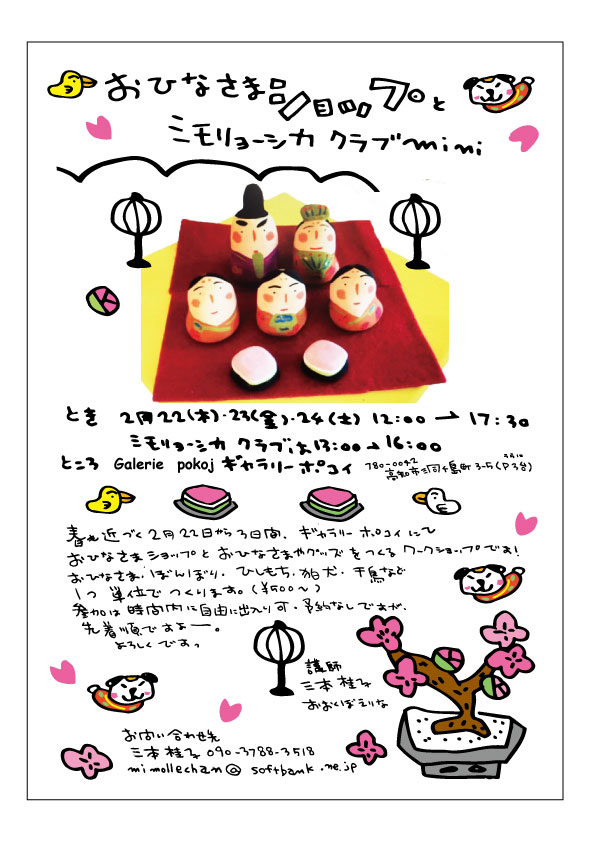 おひなさまショップと
ミモリョーシカ クラブmini
とき 2月22(木)・23(金)・24(土) 12:00→17:30
ミモリョーシカ クラブは13:00→16:00
ところ Galerie pokoj ギャラリーポコイ 780-0042
高知市 町3-5(P3台)
うらに
春も近づく2月22日から3日間、ギャラリーポコイにて
おひなさまショップとおひなさまやグッズをつくるワークショップです!
おひなさま、ぼんぼり、ひしもち、狛犬、千鳥など
1つ単位でつくります。(¥500〜)
参加は時間内に自由に出入り可・予約なしですが、
先着順ですよー。
よろしくですっ
講師
三本 桂子
おおくぼえりな
お問い合わせ先
三本 桂子 090-3788-3518
mimollechan@softbank.ne.jp